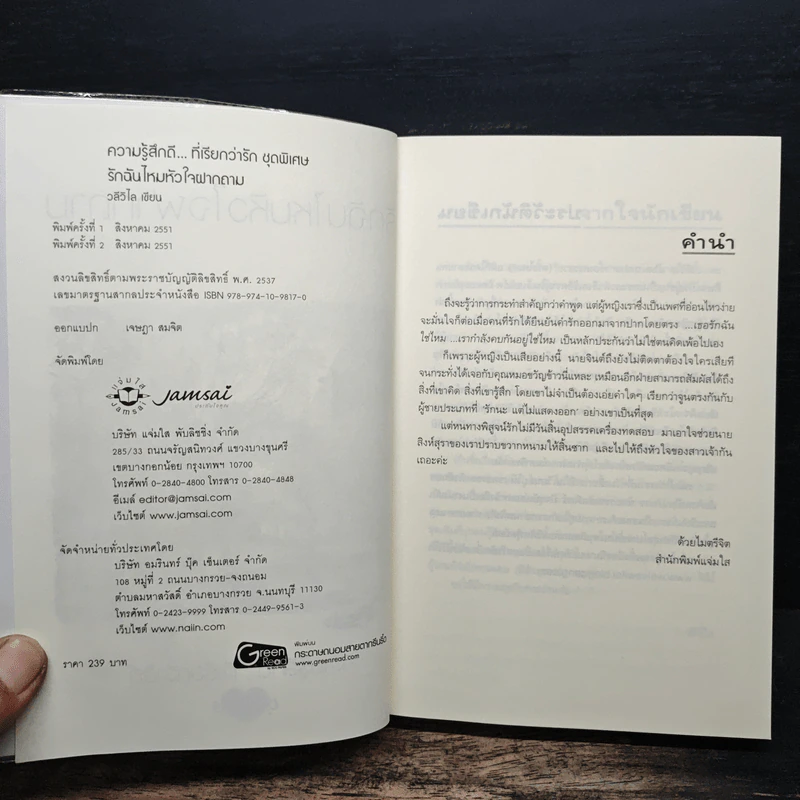 ความรู้สึกดี... ที่เรียกว่ารัก ชุดพิเศษ
รักฉันไหมหัวใจฝากถาม
วลีวิไล เขียน
พิมพ์ครั้งที่ 1 สิงหาคม 2551
พิมพ์ครั้งที่ 2 สิงหาคม 2551
สงวนลิขสิทธิ์ตามพระราชบัญญัติลิขสิทธิ์ พ.ศ. 2537
เลขมาตรฐานสากลประจำหนังสือ ISBN 978-974-10-9817-0
ออกแบบปก เจษฎา สมจิต
จัดพิมพ์โดย
แจ่มใส
Jamsai
jamsai
บริษัท แจ่มใส พับลิชชิ่ง จำกัด
285/33 ถนนจรัญสนิทวงศ์ แขวงบางขุนศรี
เขตบางกอกน้อย กรุงเทพฯ 10700
โทรศัพท์ 0-2840-4800 โทรสาร 0-2840-4848
อีเมล์ editor@jamsai.com
เว็บไซต์ www.jamsai.com
จัดจำหน่ายทั่วประเทศโดย
บริษัท อมรินทร์ บุ๊ค เซ็นเตอร์ จำกัด
108 หมู่ที่ 2 ถนนบางกรวย-จงถนอม
ตำบลมหาสวัสดิ์ อำเภอบางกรวย จ.นนทบุรี 11130
โทรศัพท์ 0-2423-9999 โทรสาร 0-2449-9561-3
เว็บไซต์ www.naiin.com
ราคา 239 บาท
Green Read
พิมพ์บน
กระดาษถนอมสายตากรีนรี้ด
www.greenread.com
คำนำ
ถึงจะรู้ว่าการกระทำสำคัญกว่าคำพูด แต่ผู้หญิงเราซึ่งเป็นเพศที่อ่อนไหวง่าย
จะมั่นใจก็ต่อเมื่อคนที่รักได้ยืนยันคำรักออกมาจากปากโดยตรง ...เธอรักฉัน
ใช่ไหม ...เรากำลังคบกันอยู่ใช่ไหม เป็นหลักประกันว่าไม่ใช่ตนคิดเพ้อไปเอง
ก็เพราะผู้หญิงเป็นเสียอย่างนี้ นายจินต์ถึงยังไม่ติดตาต้องใจใครเสียที
จนกระทั่งได้เจอกับคุณหมอขวัญข้าวนี่แหละ เหมือนอีกฝ่ายสามารถสัมผัสได้ถึง
สิ่งที่เขาคิด สิ่งที่เขารู้สึก โดยเขาไม่จำเป็นต้องเอ่ยคำใดๆ เรียกว่าจูนตรงกันกับ
ผู้ชายประเภทที่ 'รักนะ แต่ไม่แสดงออก' อย่างเขาเป็นที่สุด
แต่หนทางพิสูจน์รักไม่มีวันสิ้นอุปสรรคเครื่องทดสอบ มาเอาใจช่วยนาย
สิงห์สุราของเราปราบขวากหนามให้สิ้นซาก และไปให้ถึงหัวใจของสาวเจ้ากัน
เถอะค่ะ
ด้วยไมตรีจิต
สำนักพิมพ์แจ่มใส